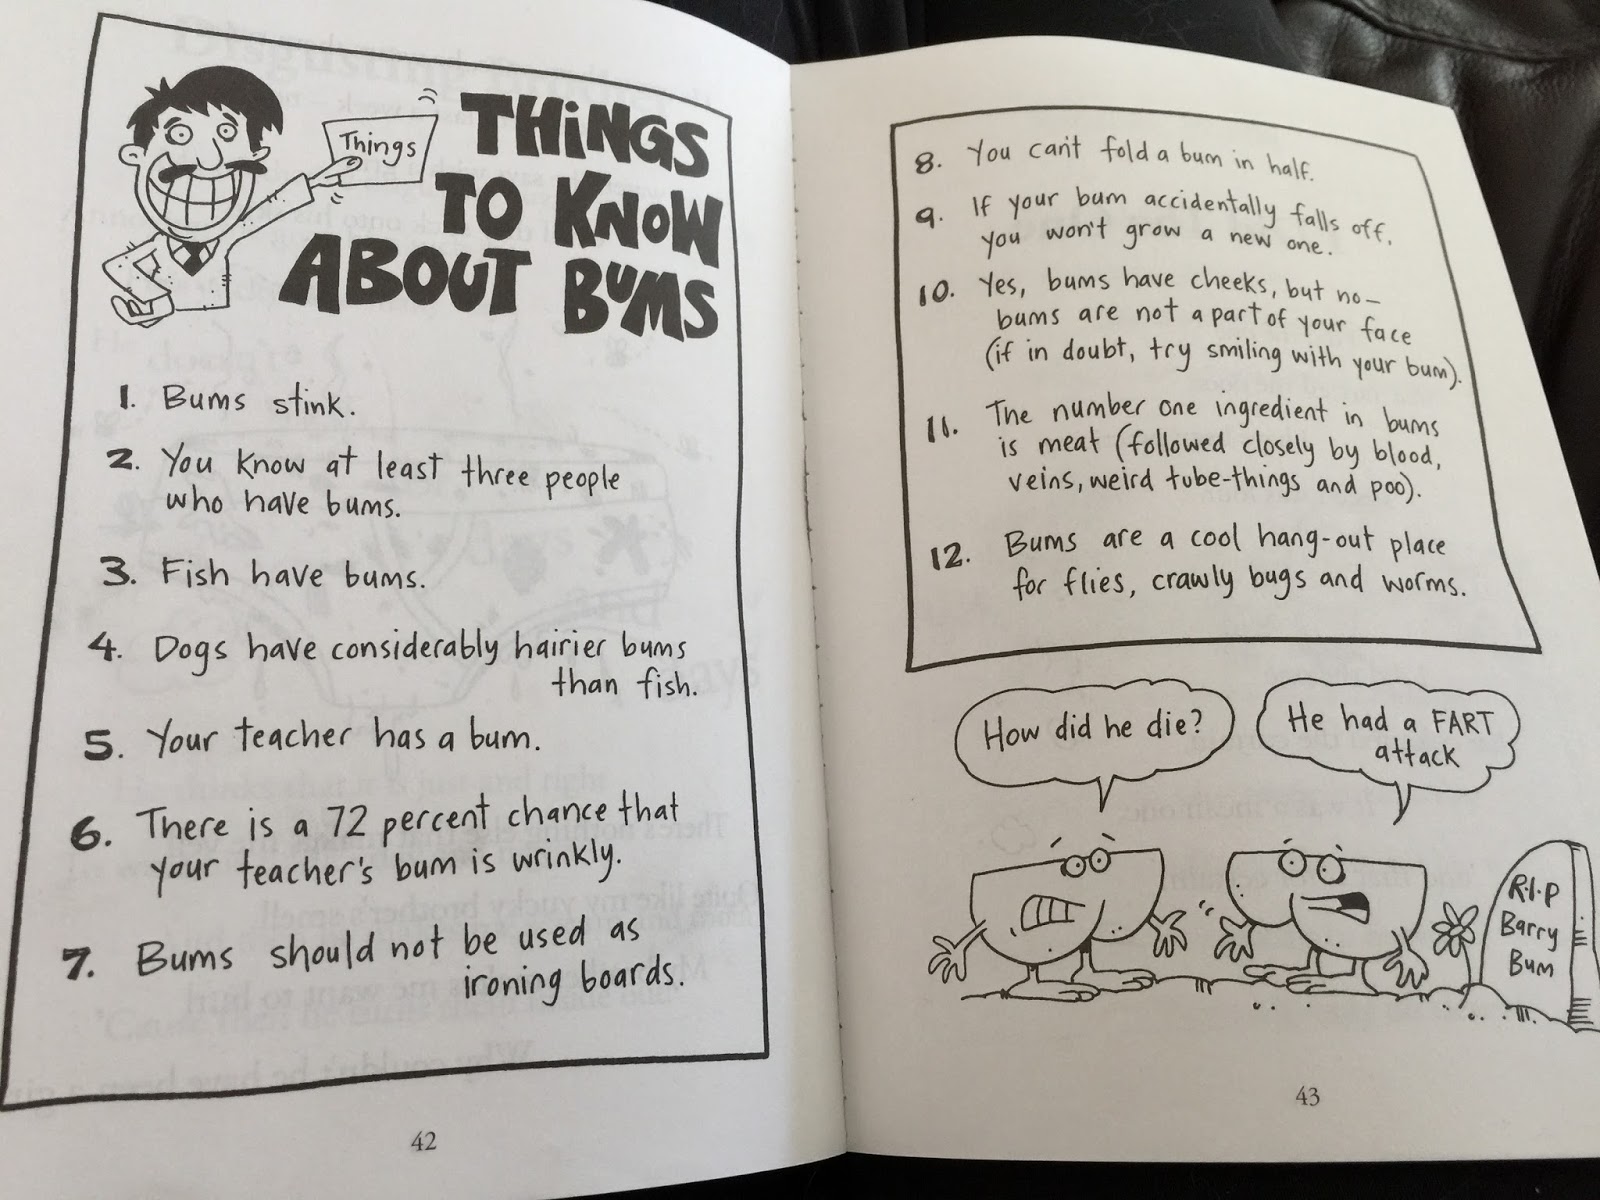 Things
THiNGS
TO KNOW
ABOUT BUMS
1. Bums stink.
2. You know at least three people
who have bums.
3. Fish have bums.
4. Dogs have considerably hairier bums
than fish.
5. Your teacher has a bum.
6. There is a 72 percent chance that
your teacher's bum is wrinkly.
7. Bums should not be used as
ironing boards.
42
8. You can't fold a bum in half.
9. If your bum accidentally falls off,
you won't grow a new one.
10. Yes, bums have cheeks, but no—
bums are not a part of your face
(if in doubt, try smiling with your bum).
11. The number one ingredient in bums
is meat (followed closely by blood,
veins, weird tube-things and poo).
12. Bums are a cool hang-out place
for flies, crawly bugs and worms.
How did he die?
He had a FART
attack
R.I.P
Barry
Bum
43